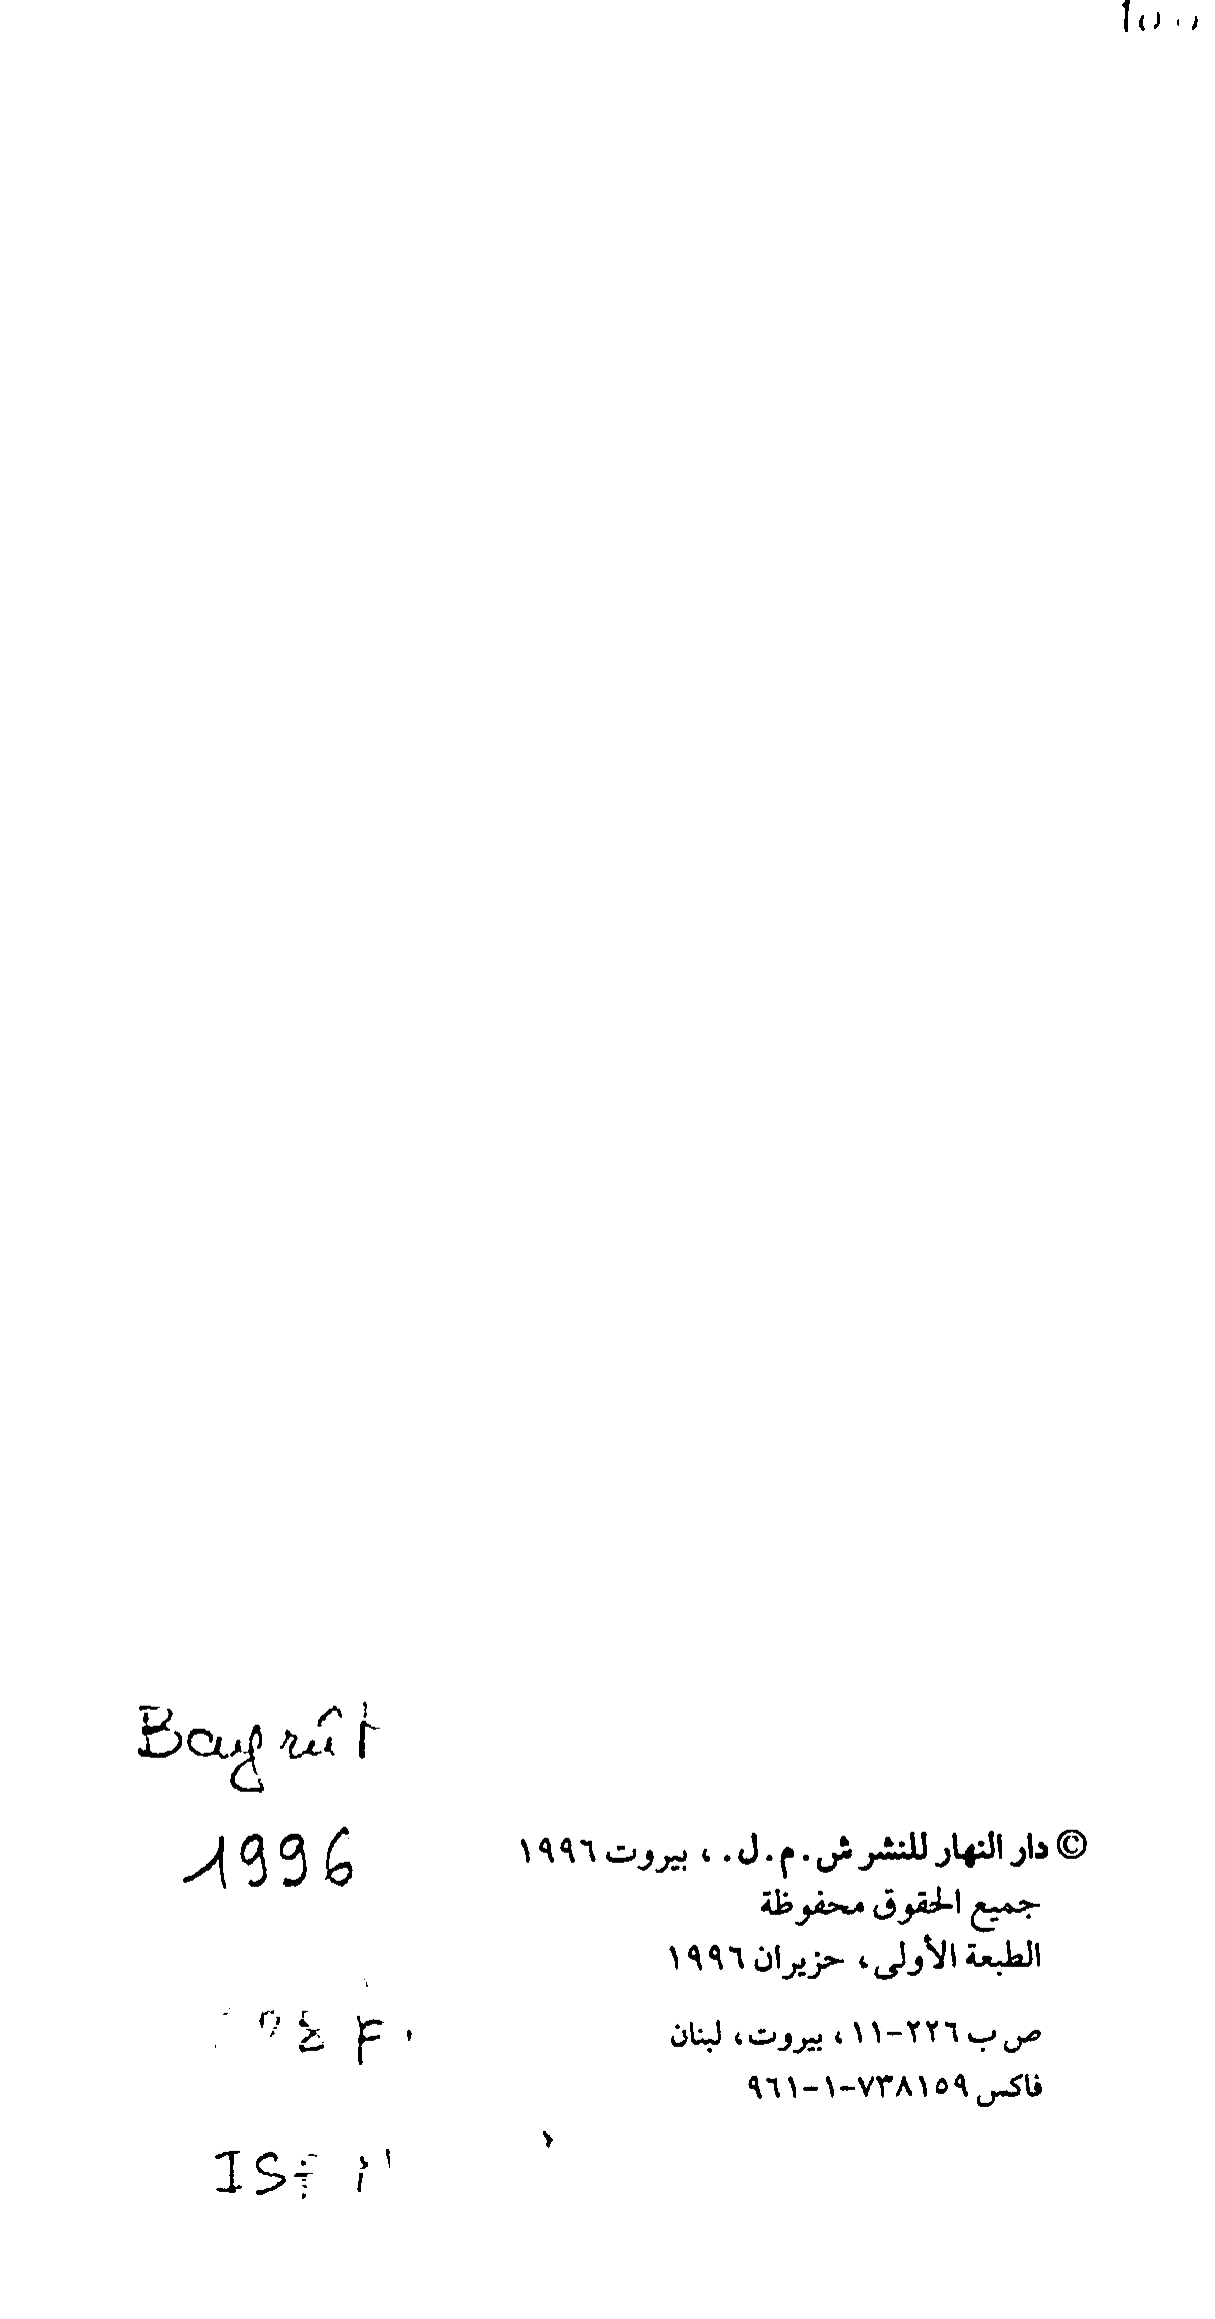 Bayrût
1996
© دار النهار للنشر ش.م.ل.، بيروت ١٩٩٦
جميع الحقوق محفوظة
الطبعة الأولى، حزيران ١٩٩٦
ص ب ٢٢٦-١١، بيروت، لبنان
فاكس ٧٣٨١٥٩-١-٩٦١